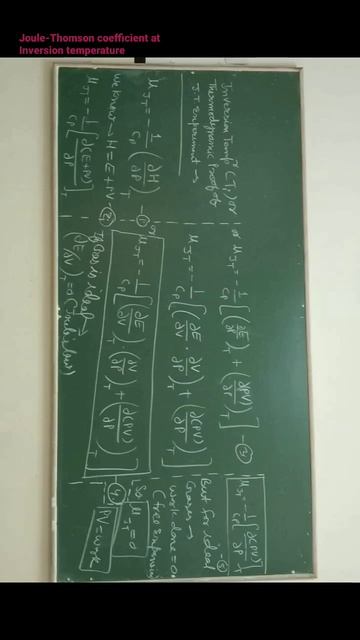 Joule-Thomson coefficient at
Inversion temperature
Inversion Temp^r (T_i) or
Thermodynamic Proof of
J.T Experiment →
μ_JT = -1/C_P (∂H/∂P)_T —①
we know → H = E + PV —②
μ_JT = -1/C_P [∂(E+PV)/∂P]_T
or μ_JT = -1/C_P [(∂E/∂P)_T + (∂(PV)/∂P)_T] —③
μ_JT = -1/C_P [(∂E/∂V · ∂V/∂P)_T + (∂(PV)/∂P)_T]
or μ_JT = -1/C_P [(∂E/∂V)_T · (∂V/∂P)_T + (∂(PV)/∂P)_T] —④
If Gas is ideal →
(∂E/∂V)_T = 0 (Joule's law)
μ_JT = -1/C_P [∂(PV)/∂P]_T —⑤
But for ideal
Gases →
work done = 0
(free expansion
So μ_JT = 0
PV = work